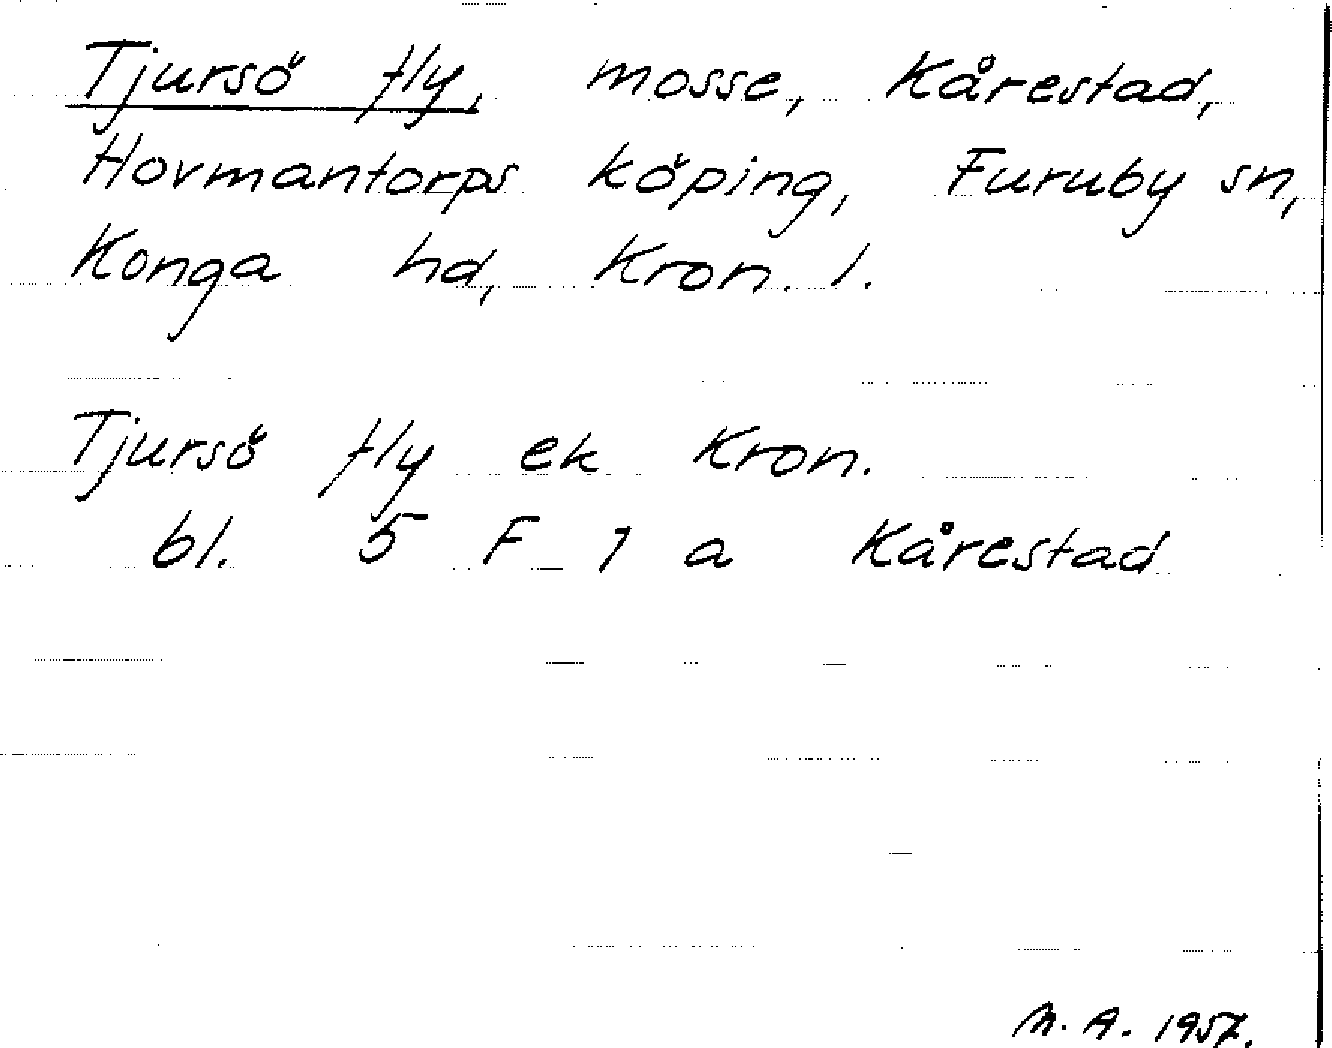 Tjursö fly, mosse, Kårestad,
Hovmantorps köping, Furuby sn,
Konga hd, Kron. l.
Tjursö fly ek Kron.
bl. 5 F 1 a Kårestad
M. A. 1957.